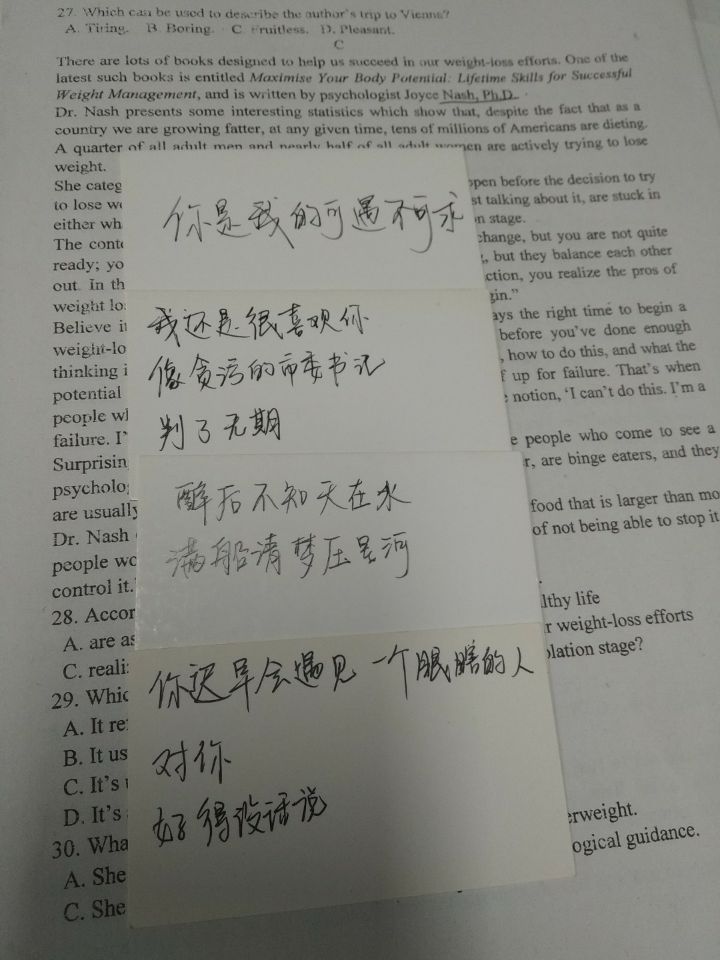 27. Which can be used to describe the author's trip to Vienna?
A. Tiring. B. Boring. C. Fruitless. D. Pleasant.
C
There are lots of books designed to help us succeed in our weight-loss efforts. One of the
latest such books is entitled Maximise Your Body Potential: Lifetime Skills for Successful
Weight Management, and is written by psychologist Joyce Nash, Ph.D.
Dr. Nash presents some interesting statistics which show that, despite the fact that as a
country we are growing fatter, at any given time, tens of millions of Americans are dieting.
A quarter of all adult men and nearly half of all adult women are actively trying to lose
weight.
She categ
open before the decision to try
to lose we
st talking about it, are stuck in
either wh
n stage.
The conte
change, but you are not quite
ready; yo
, but they balance each other
out. In th
ction, you realize the pros of
weight lo
gin."
Believe it
ays the right time to begin a
weight-lo
before you've done enough
thinking i
, how to do this, and what the
potential
f up for failure. That's when
people wh
notion, 'I can't do this. I'm a
failure. I'
e people who come to see a
Surprisin
r, are binge eaters, and they
psycholog
are usually
food that is larger than mo
Dr. Nash
of not being able to stop it
people wo
control it.
28. Accor
lthy life
A. are as
r weight-loss efforts
C. reali
lation stage?
29. Whic
A. It re
B. It us
C. It's
D. It's
erweight.
30. Wha
ogical guidance.
A. She
C. She
你是我的可遇不可求
我还是很喜欢你
像贪污的市委书记
判了无期
醉后不知天在水
满船清梦压星河
你迟早会遇见一个眼瞎的人
对你
好得没话说